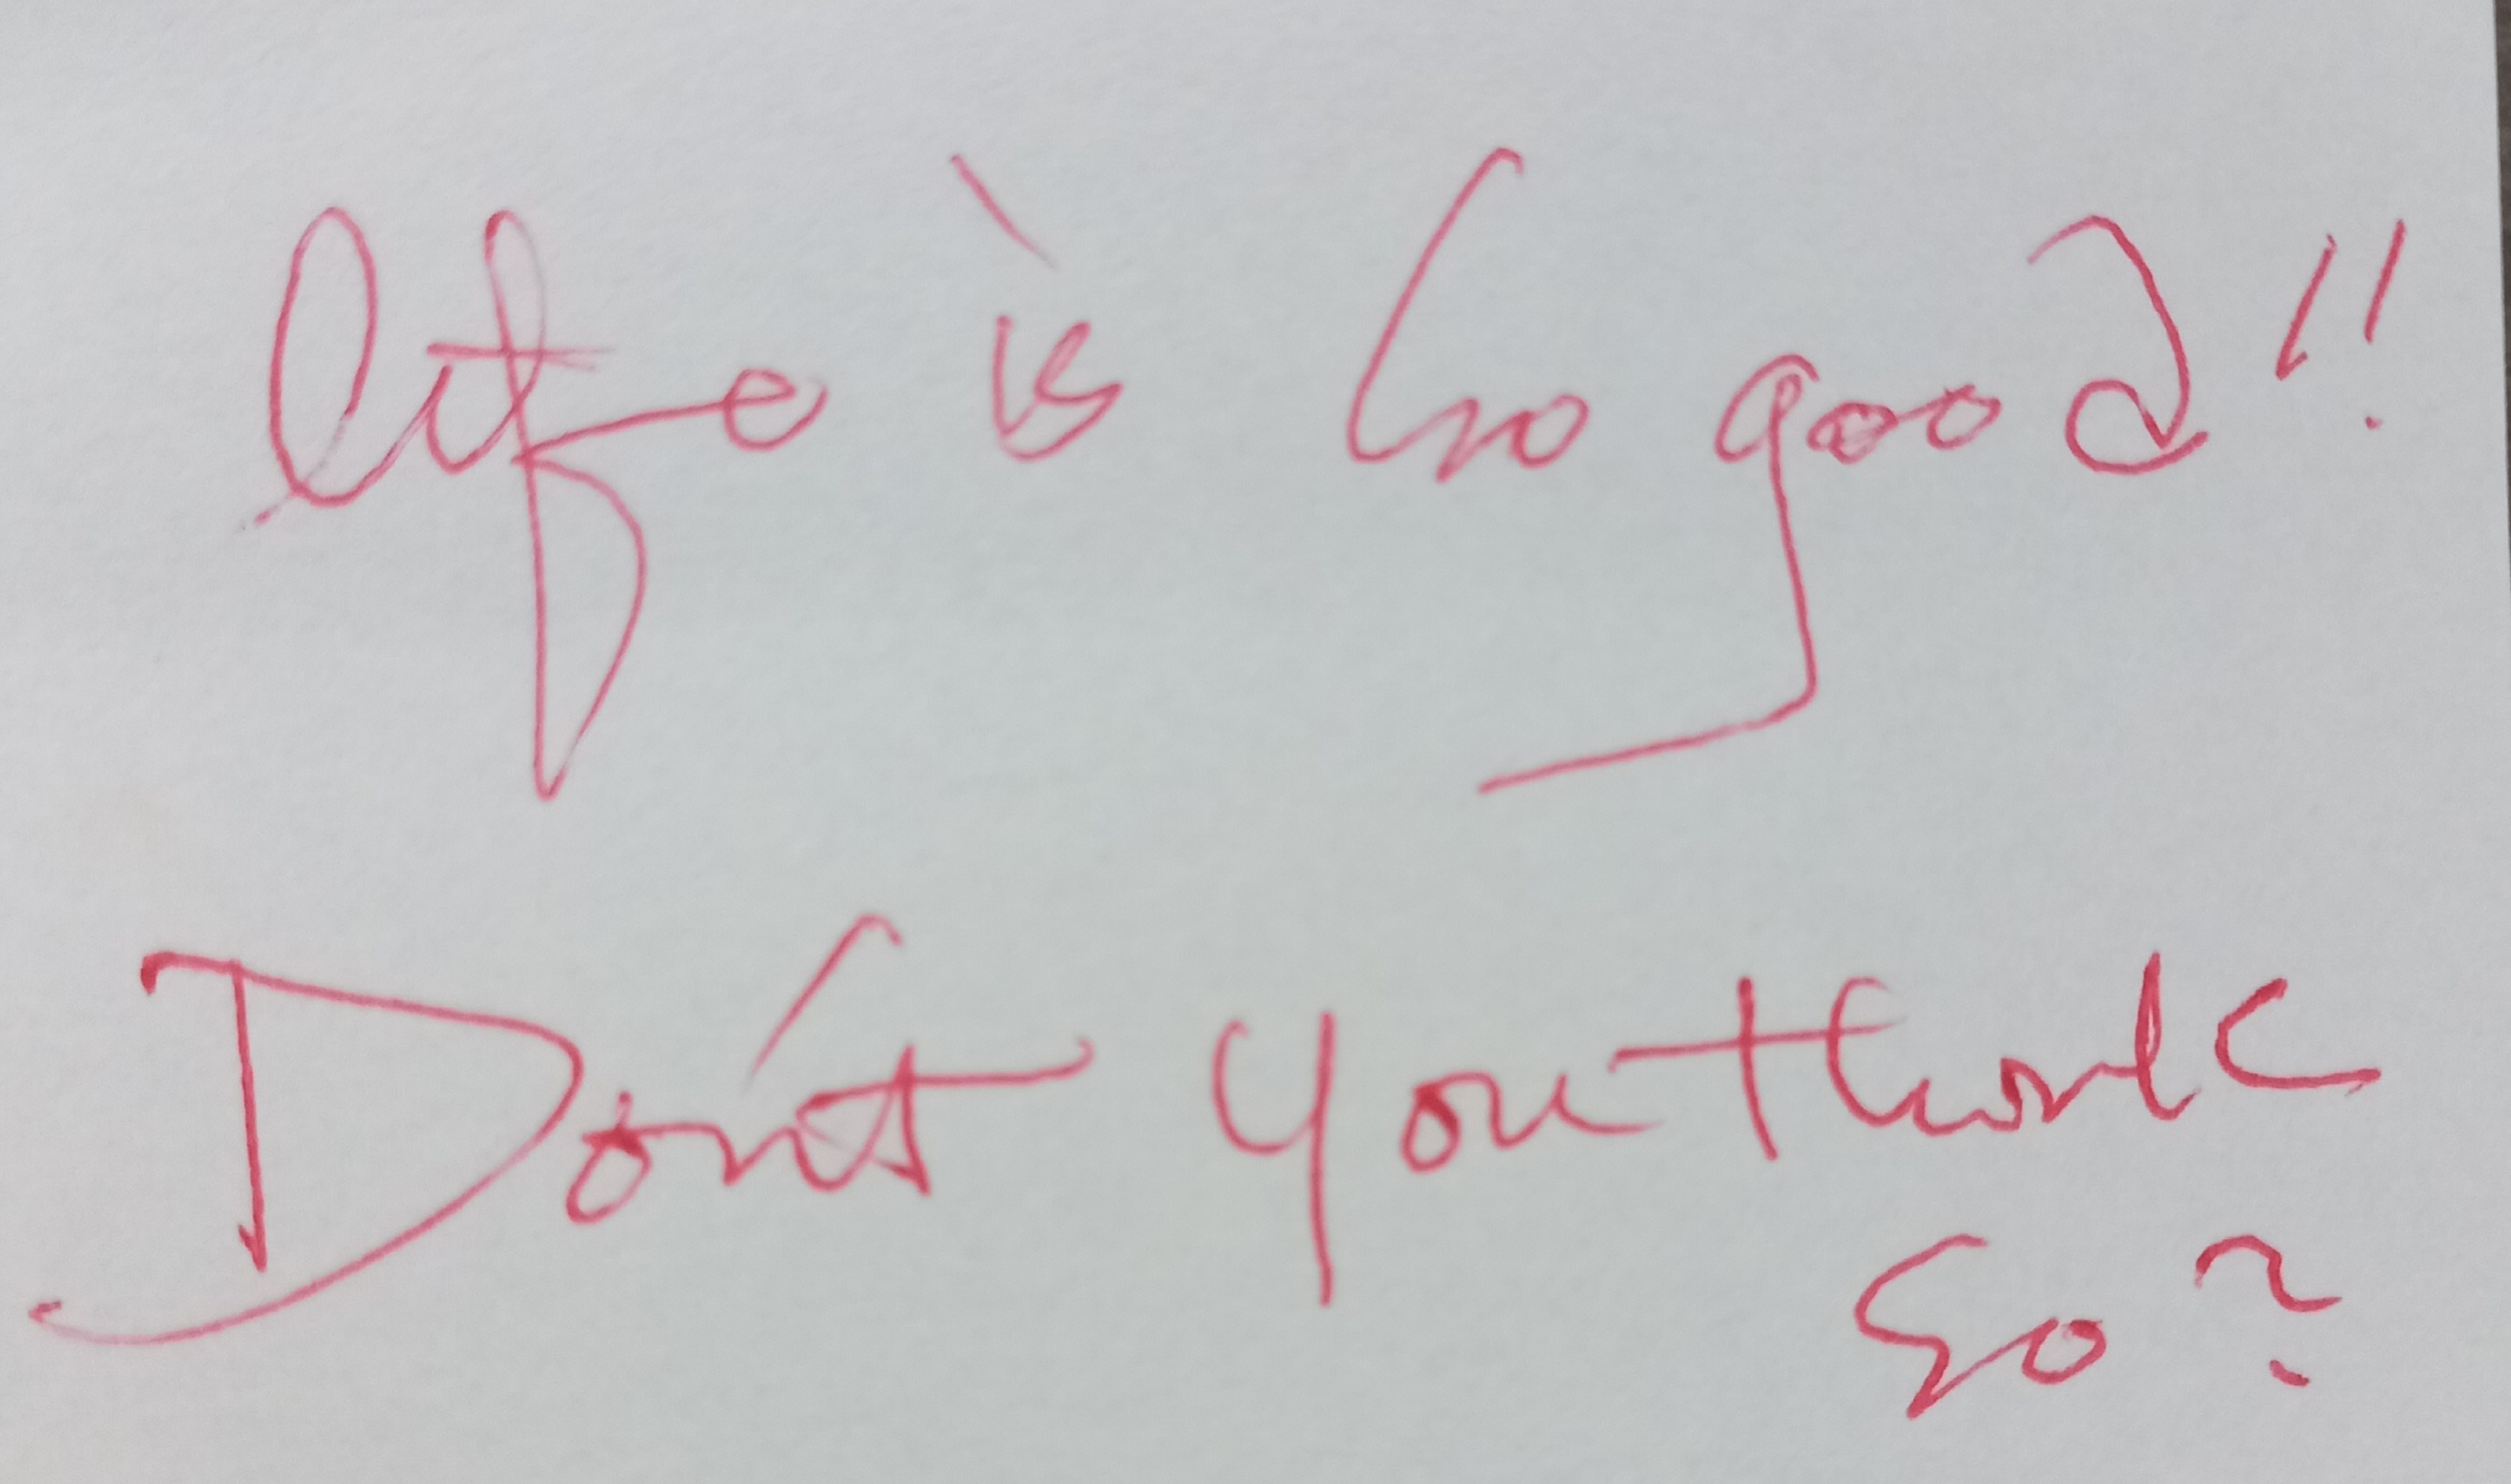 life is so good!!
Don't you think
so?